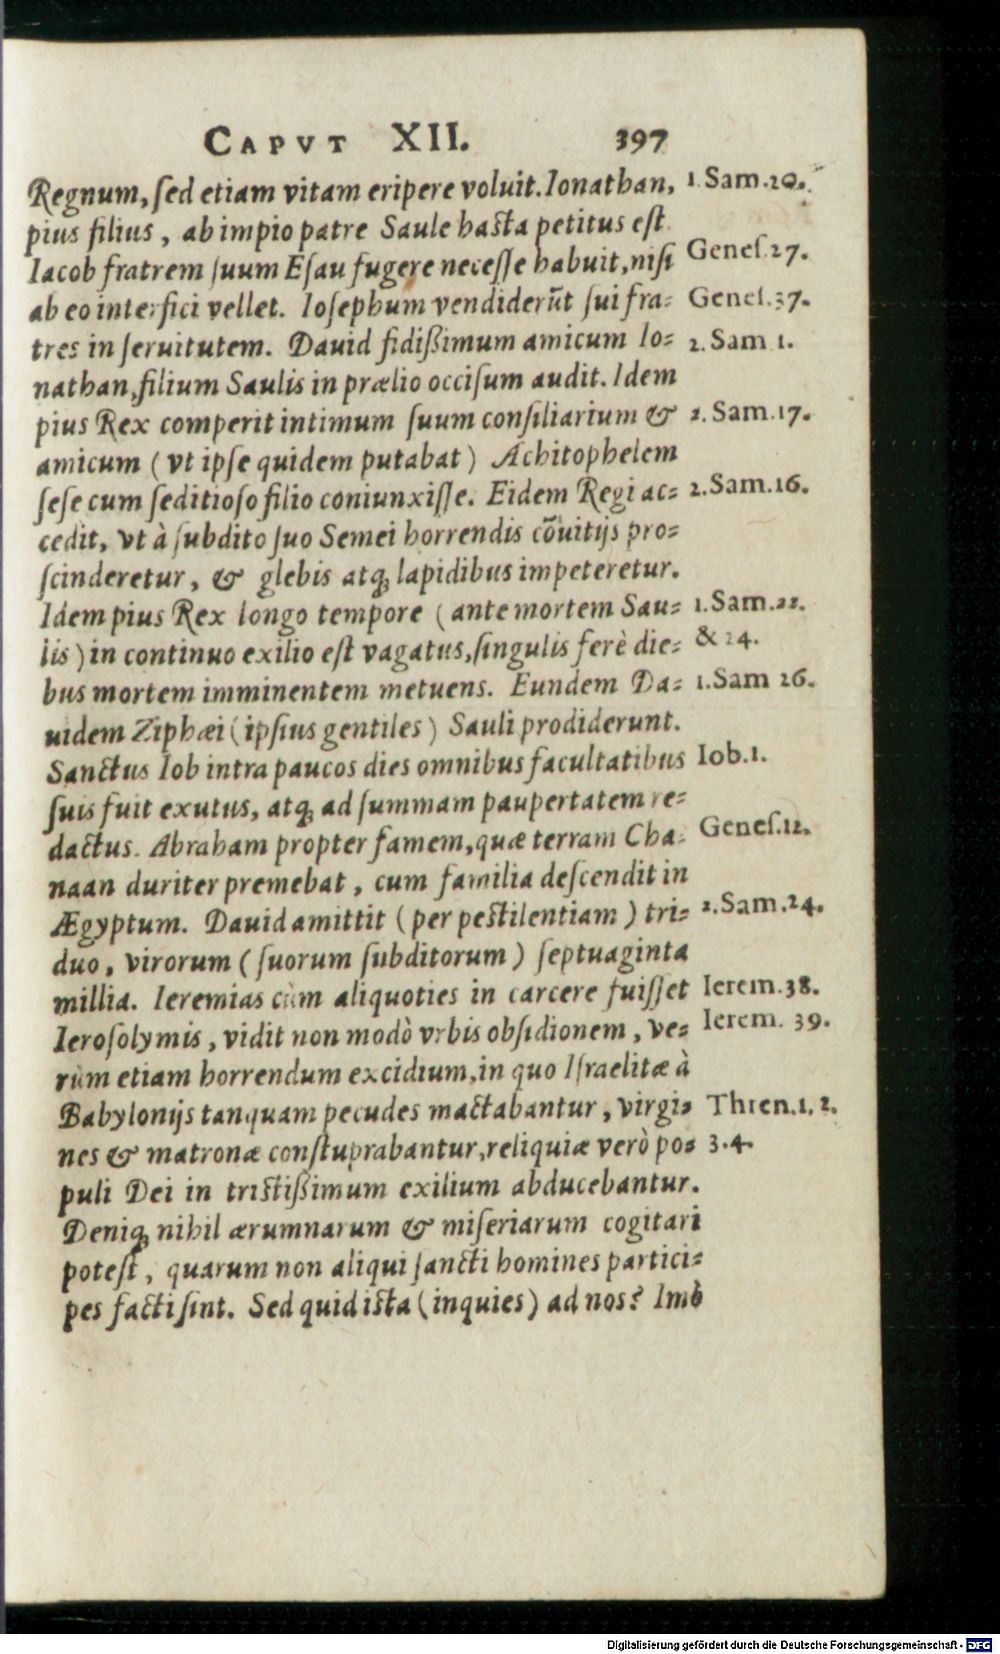 CAPVT XII. 397
Regnum, ſed etiam vitam eripere voluit. Ionathan, 1. Sam. 20.
pius filius, ab impio patre Saule haſta petitus eſt
Iacob fratrem ſuum Eſau fugere neceſſe habuit, niſi Geneſ. 27.
ab eo interfici vellet. Ioſephum vendiderūt ſui fra= Geneſ. 37.
tres in ſeruitutem. Dauid fidißimum amicum Io= 2. Sam 1.
nathan, filium Saulis in prælio occiſum audit. Idem
pius Rex comperit intimum ſuum conſiliarium & 2. Sam. 17.
amicum (vt ipſe quidem putabat) Achitophelem
ſeſe cum ſeditioſo filio coniunxiſſe. Eidem Regi ac= 2. Sam. 16.
cedit, vt à ſubdito ſuo Semei horrendis cōuitijs pro=
ſcinderetur, & glebis atq; lapidibus impeteretur.
Idem pius Rex longo tempore (ante mortem Sau= 1. Sam. 22.
lis) in continuo exilio eſt vagatus, ſingulis ferè die= & 24.
bus mortem imminentem metuens. Eundem Da= 1. Sam 26.
uidem Ziphæi (ipſius gentiles) Sauli prodiderunt.
Sanctus Iob intra paucos dies omnibus facultatibus Iob. 1.
ſuis fuit exutus, atq; ad ſummam paupertatem re=
dactus. Abraham propter famem, quæ terram Cha= Geneſ. 12.
naan duriter premebat, cum familia deſcendit in
Ægyptum. Dauid amittit (per peſtilentiam) tri= 2. Sam. 24.
duo, virorum (ſuorum ſubditorum) ſeptuaginta
millia. Ieremias cùm aliquoties in carcere fuiſſet Ierem. 38.
Ieroſolymis, vidit non modò vrbis obſidionem, ve= Ierem. 39.
rùm etiam horrendum excidium, in quo Iſraelitæ à
Babylonijs tanquam pecudes mactabantur, virgi= Thren. 1. 2.
nes & matronæ conſtuprabantur, reliquiæ verò po= 3. 4.
puli Dei in triſtißimum exilium abducebantur.
Deniq; nihil ærumnarum & miſeriarum cogitari
poteſt, quarum non aliqui ſancti homines partici=
pes facti ſint. Sed quid iſta (inquies) ad nos? Imò
Digitalisierung gefördert durch die Deutsche Forschungsgemeinschaft - DFG